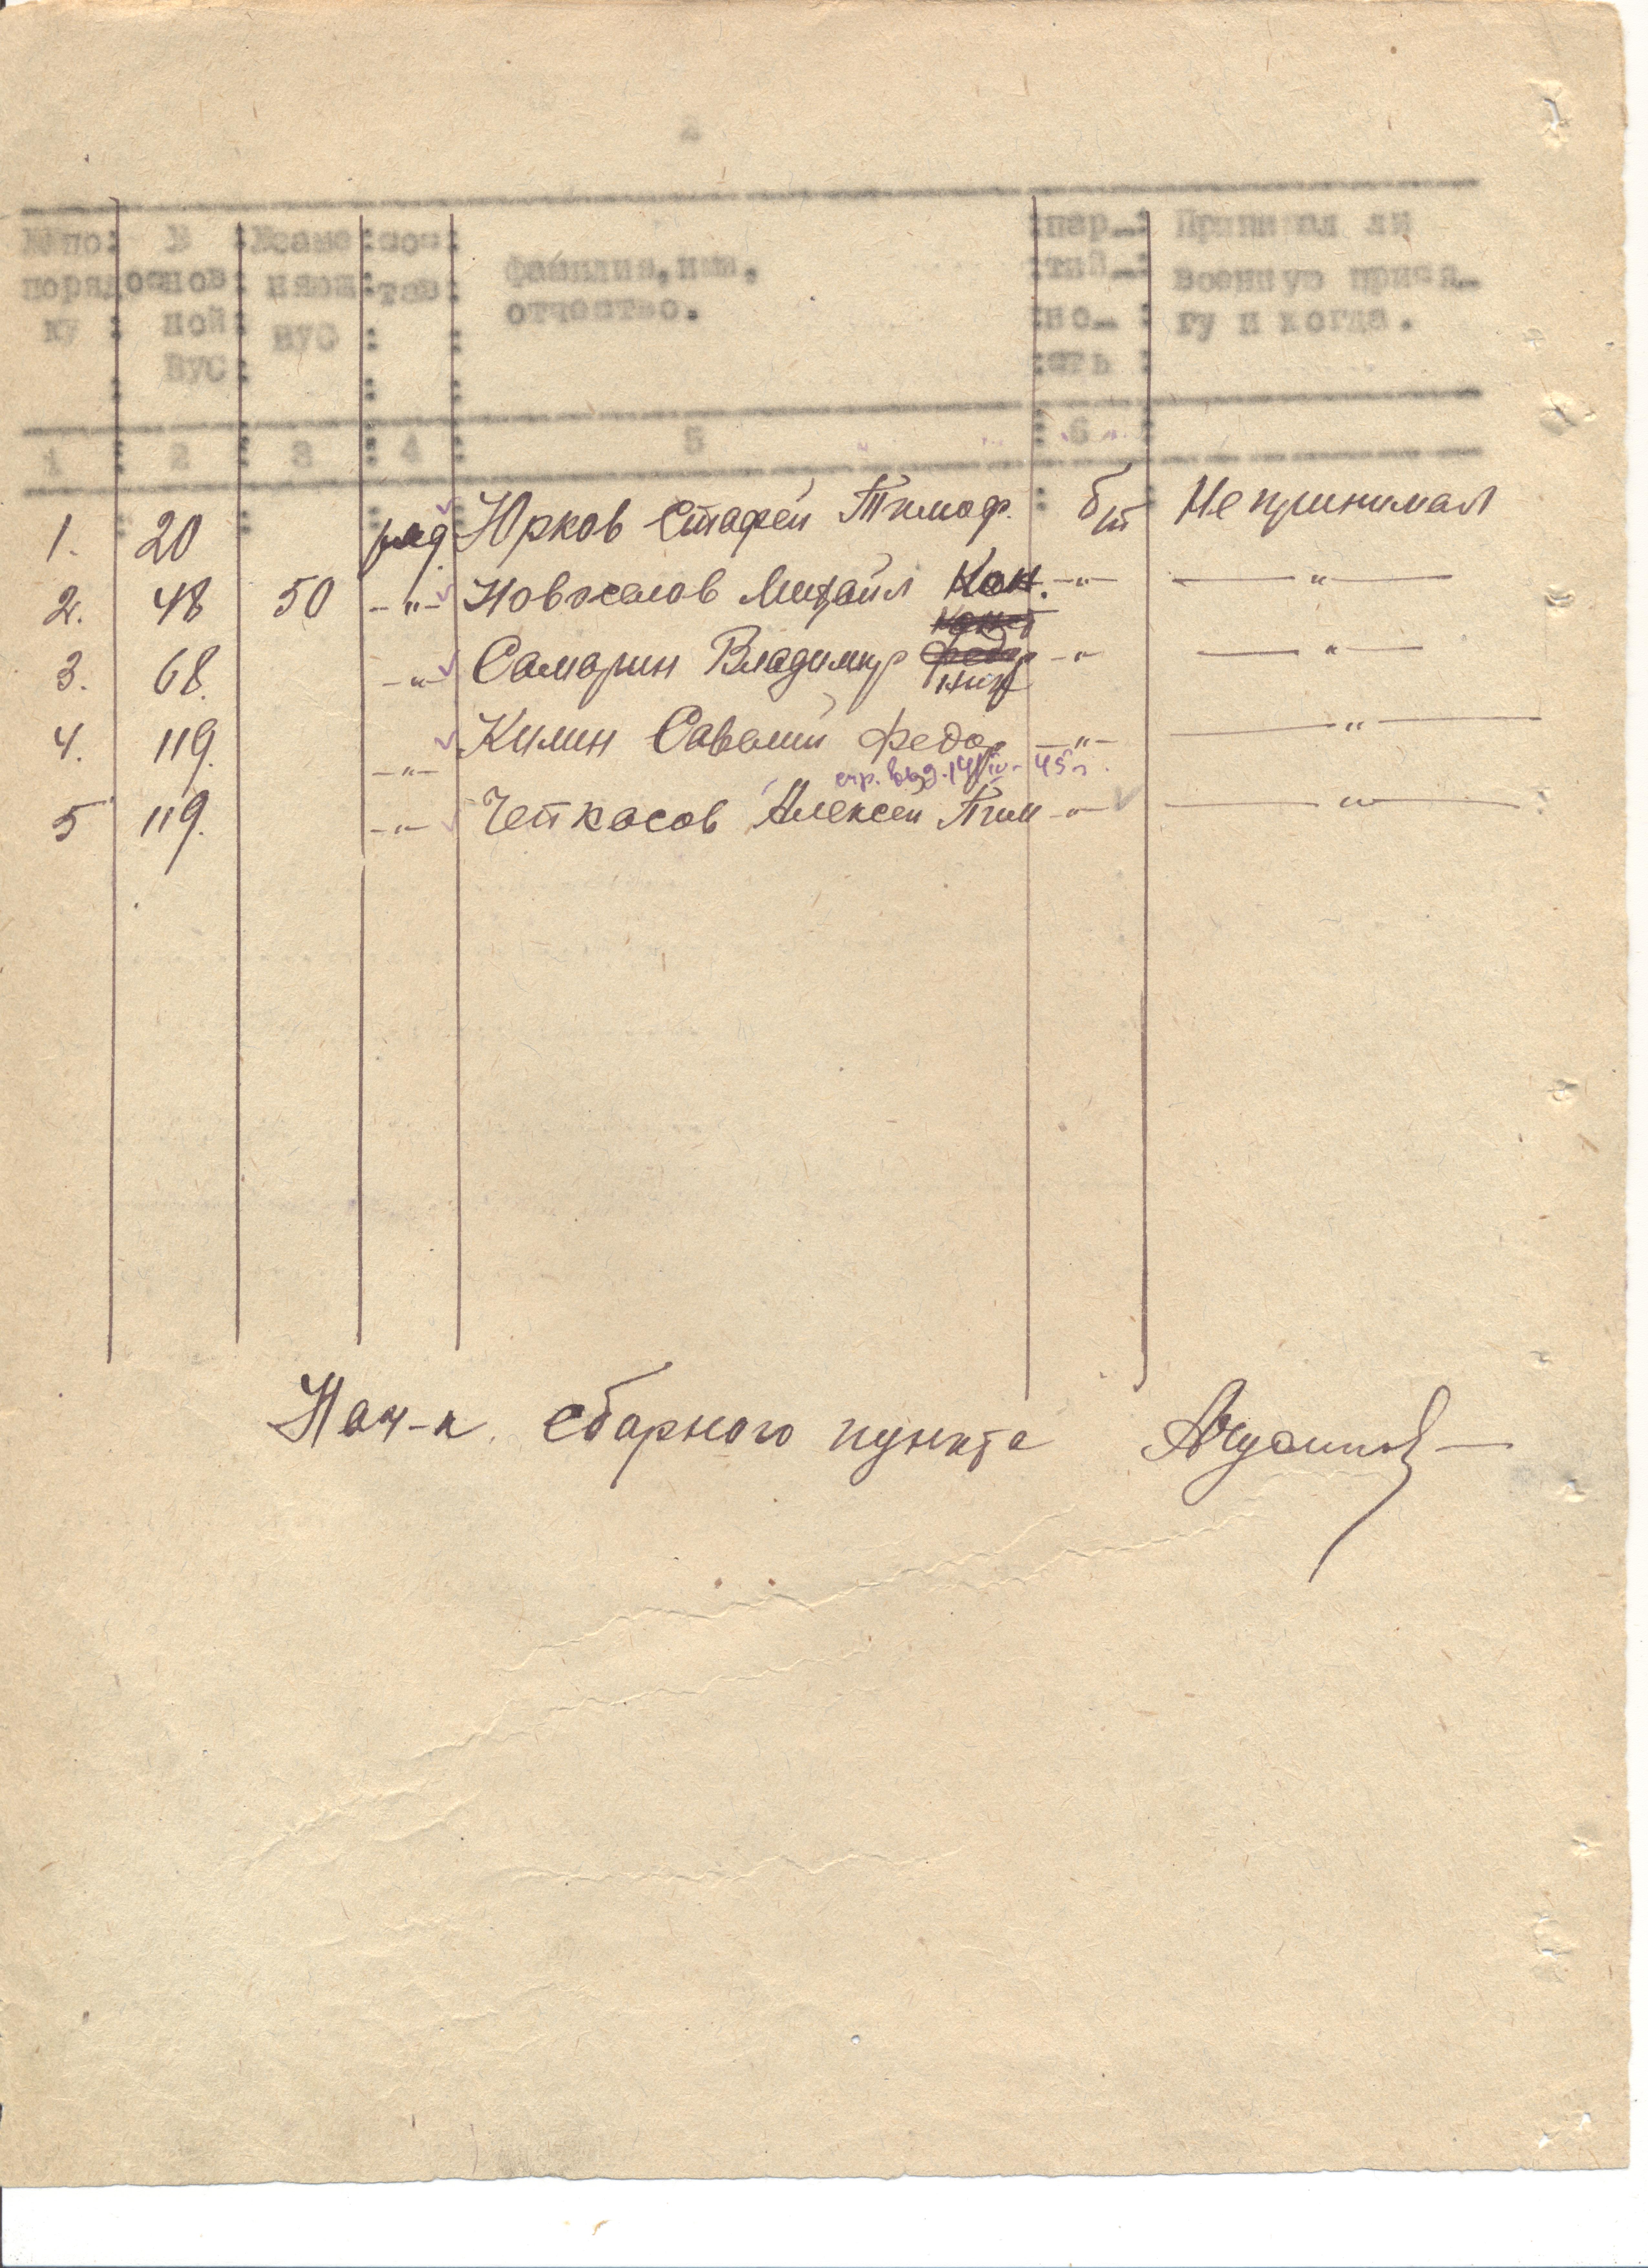 2
№№ по порядку : № основной ВУС : № заменяющ ВУС : состав : фамилия, имя, отчество. : партийность : Принимал ли военную присягу и когда.
1 : 2 : 3 : 4 : 5 : 6 :
1. 20 ряд. Юрков Стафей Тимоф. б/п Не принимал
2. 48 50 -"- Новоселов Михаил Кон. -"- -"-
3. 68. -"- Самарин Владимир -"- -"-
4. 119. -"- Килин Савелий Федор -"- -"-
спр. выд. 14/IV-45 г.
5 119. -"- Четкасов Алексей Тим -"- -"-
Нач-к сборного пункта